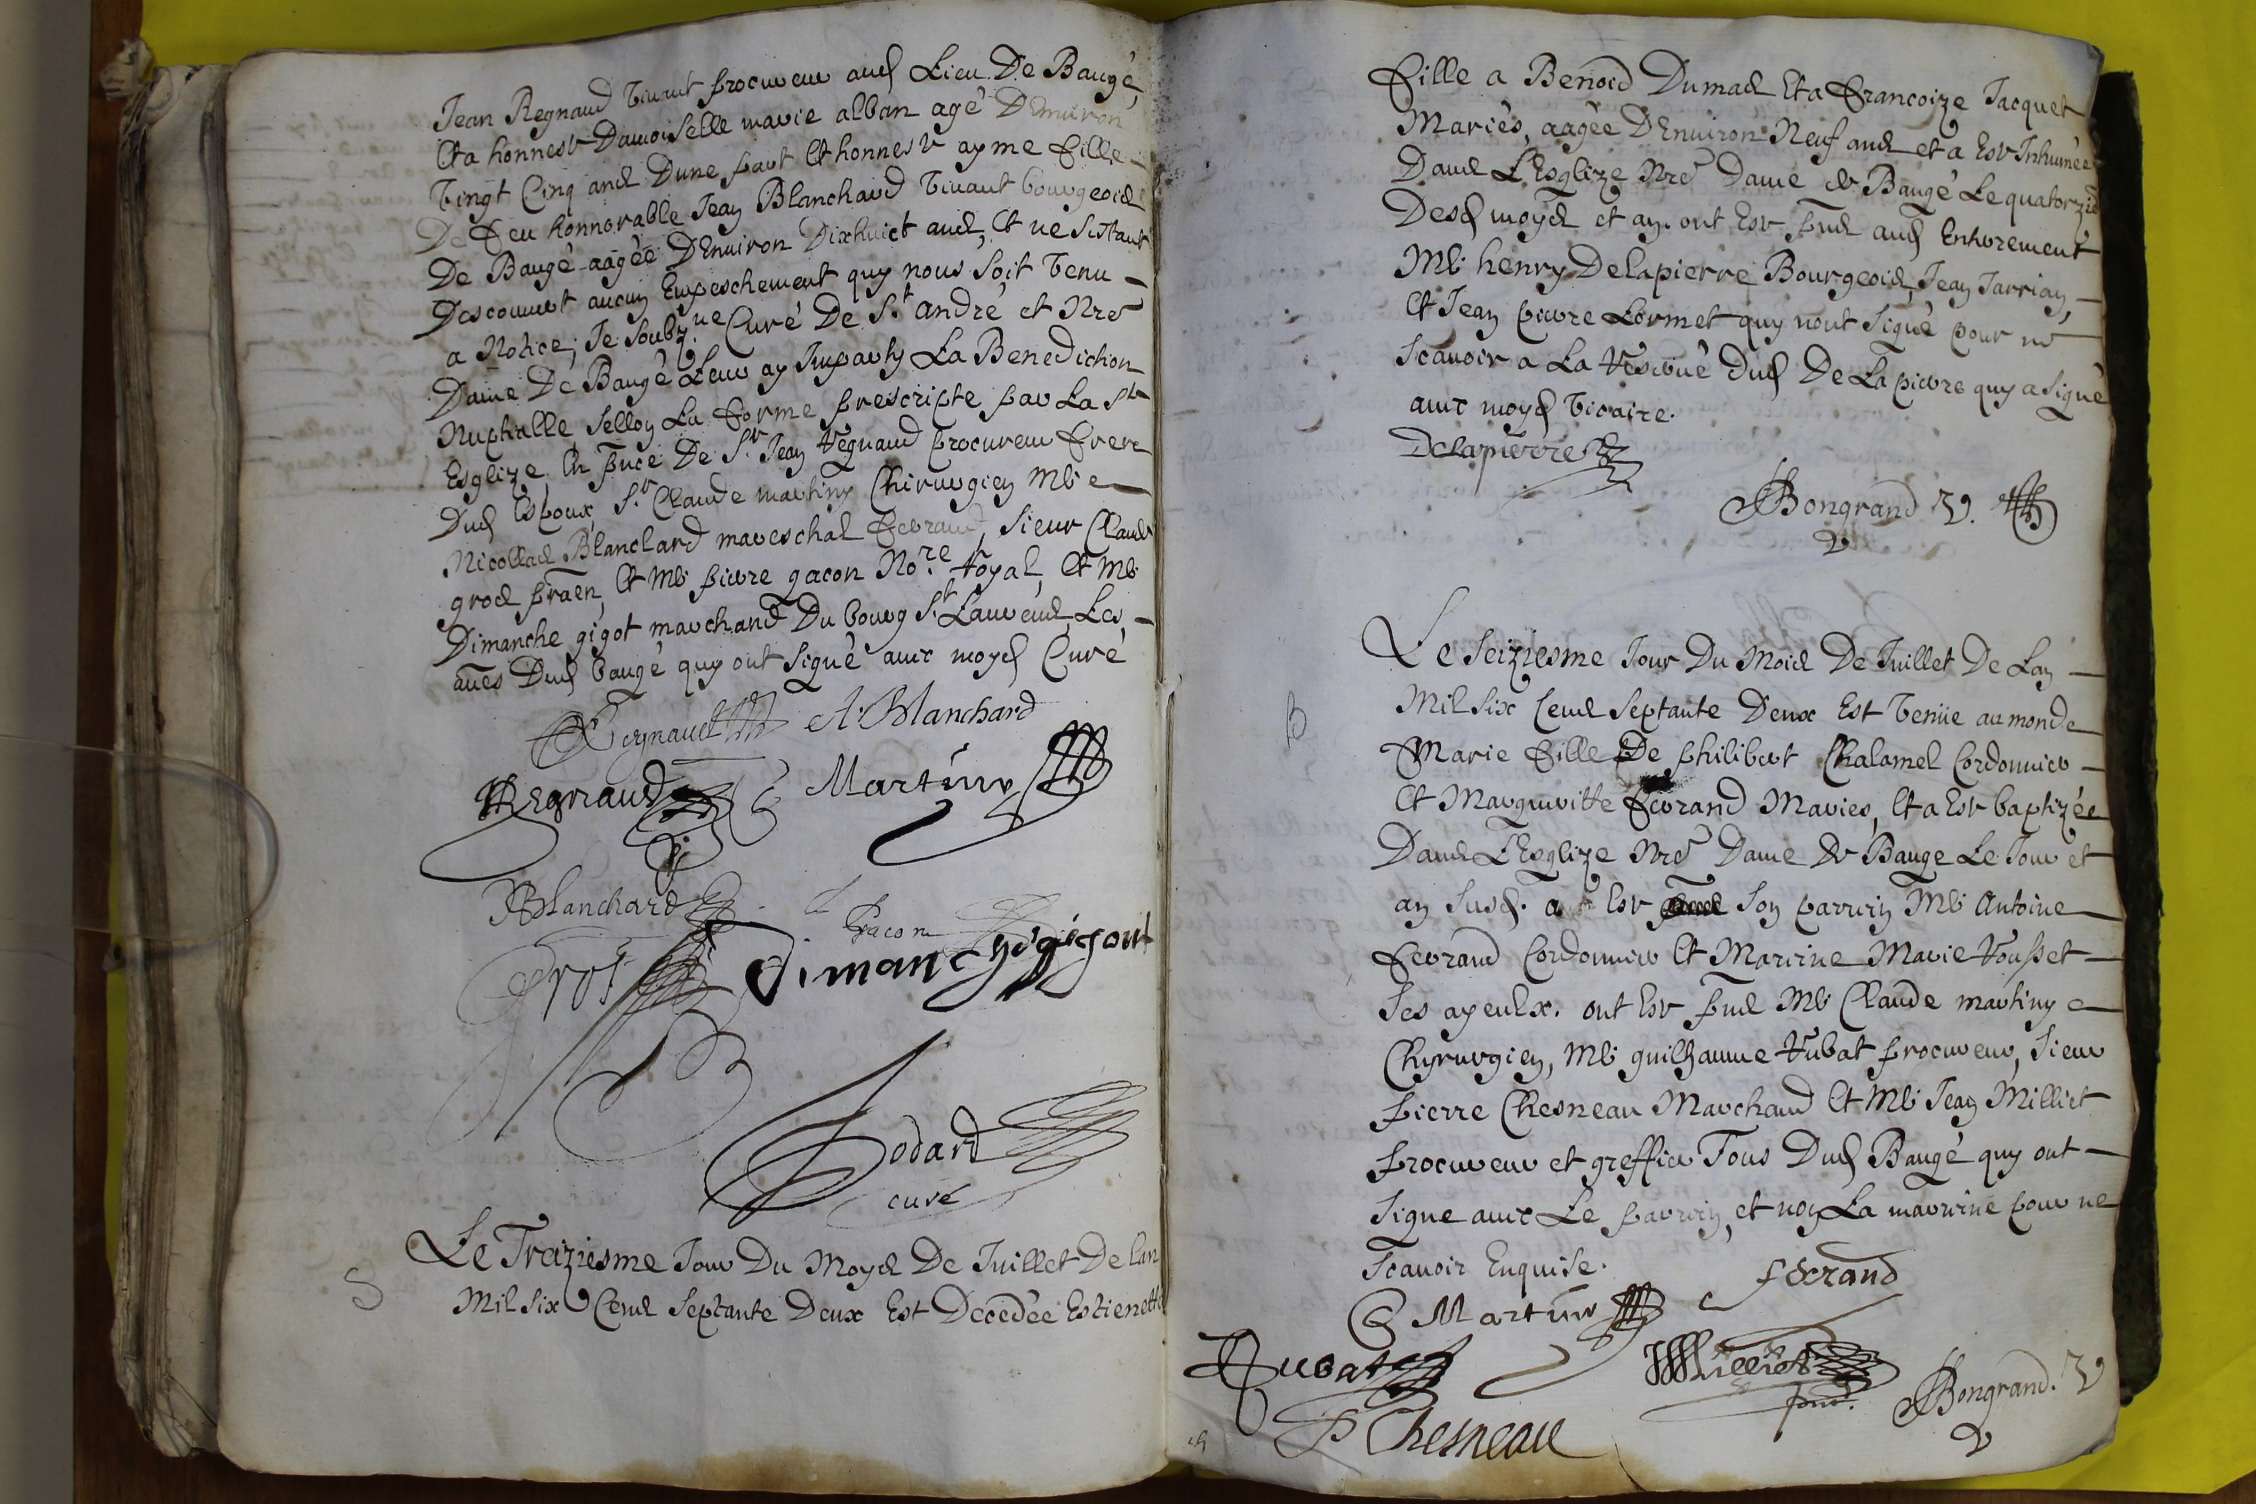 Jean Regnaud vivant procureur aud Lieu De Baugé,
Et a honneste Damoiselle marie alban agé D'Environ
Vingt Cinq ans Dune part Et honneste ayme fille
De feu honnorable Jean Blanchard vivant bourgeois
De Baugé aagée D'Environ Dixhuict ans, Et ne s'estant
Descouvert aucun Empeschement quy nous soit venu
a Notice, Je soubz.ne Curé De St andré et Nre
Dame De Baugé Leur ay Imparty La Benediction
Nuptialle sellon La forme prescripte par La Ste
Esglize En pnce De Sr Jean Regnaud procureur frere
Dud Espoux, Sr Claude martiny Chirurgien Me
Nicollas Blanchard mareschal ferrand, sieur Claude
gros praen, Et Me pierre gacon No.re Royal, Et Me
Dimanche gigot marchand Du bourg St Laurend Les
aues Dud baugé quy ont signé avec moyd Curé
Regnaud A. Blanchard
Regnaud Martiny
Blanchard Gacon
Gros Dimanche gigout
Godard
curé
S Le Treiziesme Jour Du Moys De Juillet De Lan
Mil six Cens septante Deux Est Decedée Estienette
fille a Benoid Dumas Et a francoize Jacquet
Mariés, aagée D'Environ Neuf ans et a Este Inhumée
Dans L'Esglize Nre Dame de Baugé Le quatorzie
Desd moys et an. ont Este pns aud Enterement
Me henry Delapierre Bourgeois, Jean Jarrian,
Et Jean pierre Lormet quy nont signé pour ne
scavoir a La reserve dud De La pierre quy a signé
avec moyd vicaire.
Delapierre
Bongrand V.
Le seiziesme Jour Du Mois De Juillet De Lan
B Mil six Cens septante Deux Est venüe au monde
Marie fille De philibert Chalamel Cordonnier
Et Marguerite ferrand Mariés, Et a Este baptizée
Dans L'Esglize Nre Dame de Bauge Le Jour et
an susd. a Este son parrain Me Antoine
ferrand Cordonnier Et Marrine Marie Rousset
ses ayeulx. ont Este pns Me Claude martiny
Chyrurgien, Me guilhaume Rubat procureur, sieur
pierre Chesneau Marchand Et Me Jean Milliet
procureur et greffier Tous Dud Baugé quy ont
signe avec Le parrain, et non La marrine pour ne
scavoir Enquise.
C Martiny ferrand
Rubat JMilliet Bongrand. V
P Chesneau pnt.